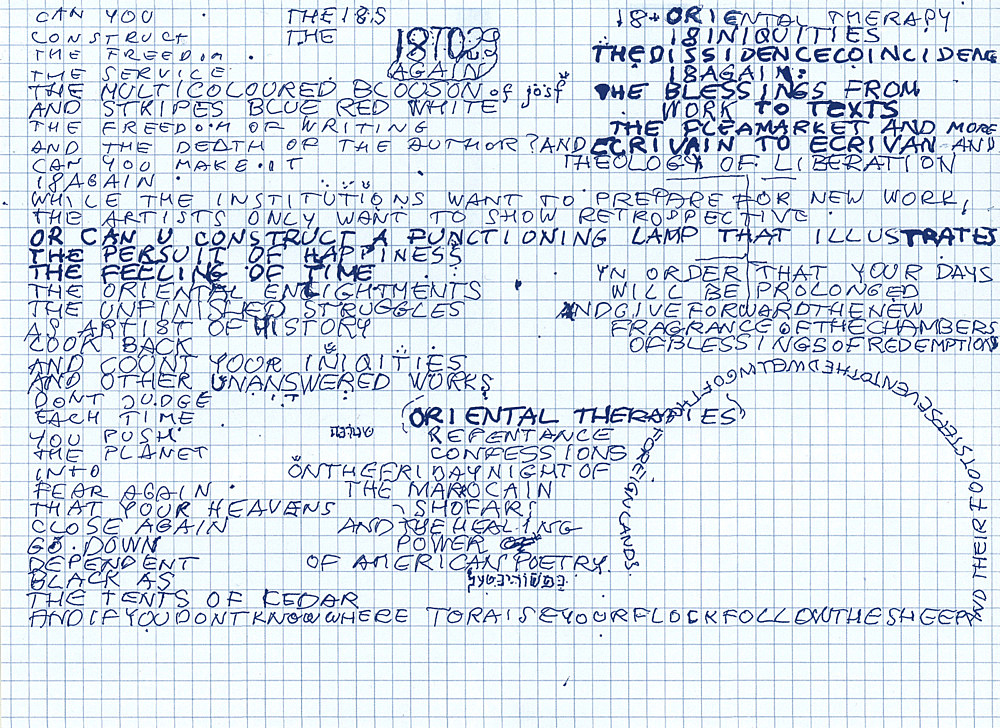 CAN YOU THE 18S
CONSTRUCT THE 187029
THE FREEDOM . AGAIN
THE SERVICE
THE MULTICOLOURED BLOUSON of josf
AND STRIPES BLUE RED WHITE
THE FREEDOM OF WRITING
AND THE DEATH OF THE AUTHOR? AND
CAN YOU MAKE IT
18AGAIN
18+ ORIENTAL THERAPY
18INIQUITIES
THEDISSIDENCECOINCIDENE
18AGAIN:
THE BLESSINGS FROM
WORK TO TEXTS
THE FLEAMARKET AND MORE
ECRIVAIN TO ECRIVAN AND
THEOLOGY OF LIBERATION
WHILE THE INSTITUTIONS WANT TO PREPARE FOR NEW WORK,
THE ARTISTS ONLY WANT TO SHOW RETROSPECTIVE
OR CAN U CONSTRUCT A FUNCTIONING LAMP THAT ILLUSTRATES
THE PERSUIT OF HAPPINESS
THE FEELING OF TIME
THE ORIENTAL ENLIGHTMENTS
THE UNFINISHED STRUGGLES
AS ARTIST OF HISTORY
LOOK BACK
AND COUNT YOUR INIQITIES
AND OTHER UNANSWERED WORKS
DONT JUDGE
EACH TIME
YOU PUSH
THE PLANET
INTO
FEAR AGAIN
THAT YOUR HEAVENS
CLOSE AGAIN
GO DOWN
DEPENDENT
BLACK AS
THE TENTS OF KEDAR
YN ORDER THAT YOUR DAYS
WILL BE PROLONGED
ANDGIVEFORWARDTHENEW
FRAGRANCEOFTHECHAMBERS
OFBLESSINGSOFREDEMPTIONS
(ORIENTAL THERAPIES)
REPENTANCE
CONFESSIONS
ONTHEFRIDAYNIGHTOF
THE MAROCAIN
SHOFARS
ANDTHEHEALING
POWER
OF AMERICAN POETRY.
ANDIFYOUDONTKNOWWHERE TORAISEYOURFLOCKFOLLOWTHESHEEP
AND THEIR FOOTSTEPSEVENTOTHEDWELINGOFTHE FOREIGN LANDS.